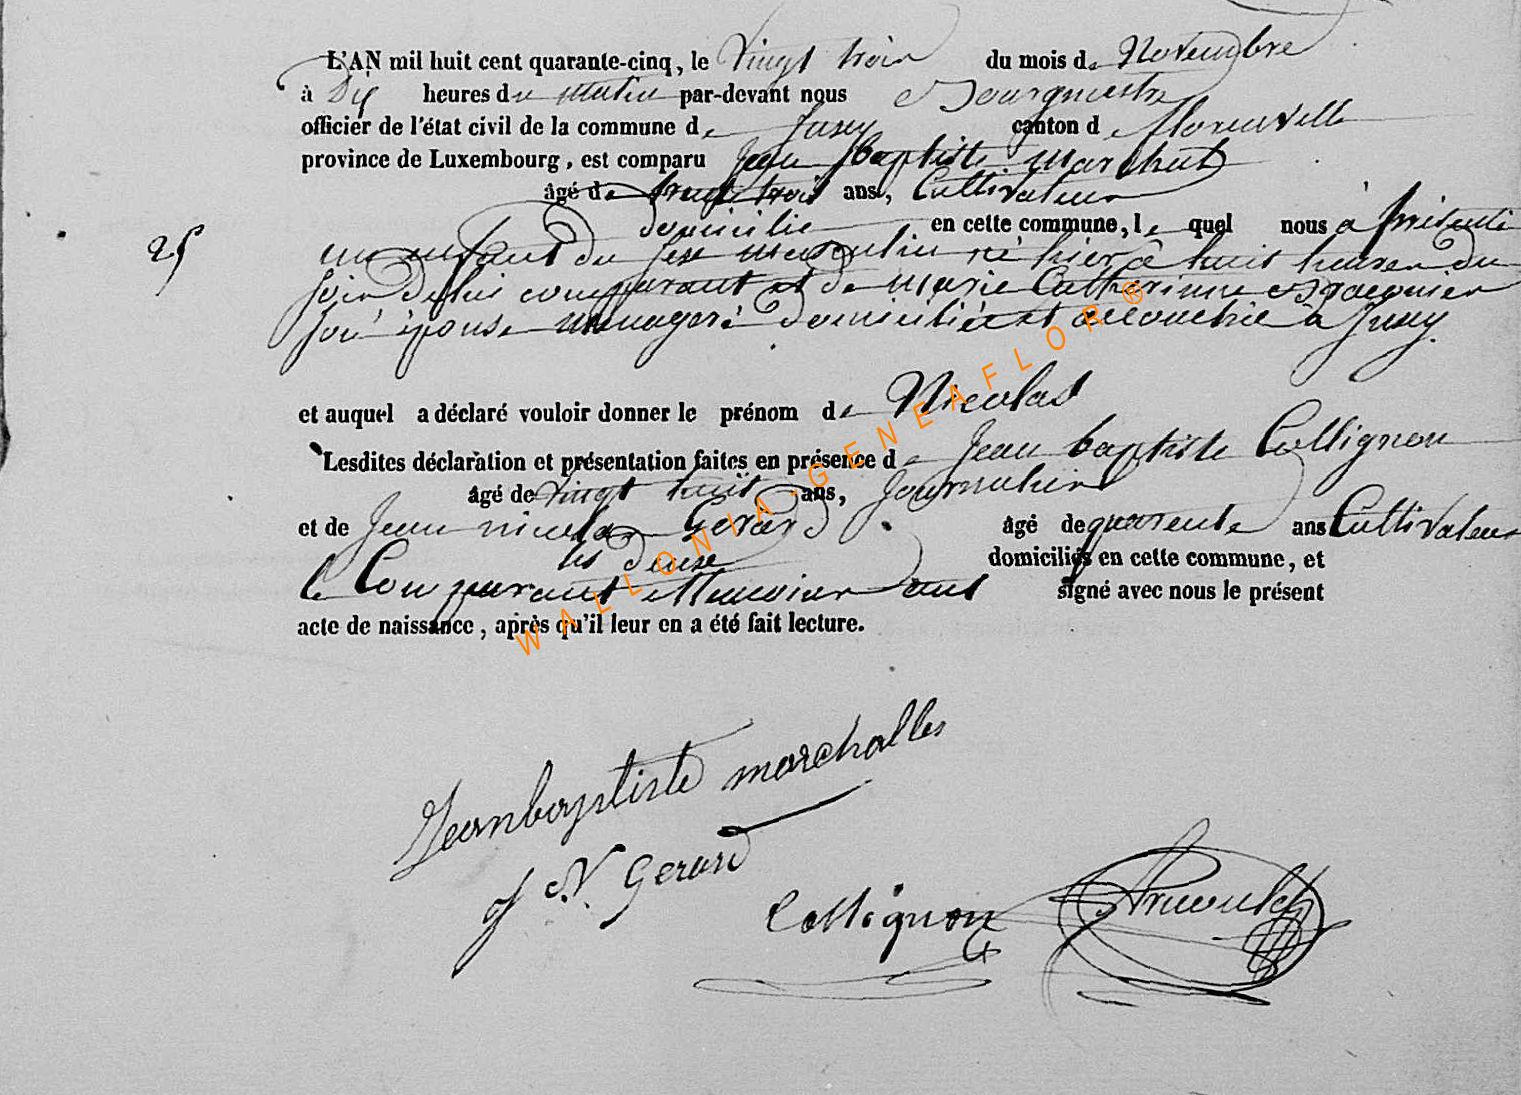 L'AN mil huit cent quarante-cinq, le Vingt trois du mois de Novembre
à Dix heures du matin par-devant nous Bourgmestre
officier de l'état civil de la commune de Jusey canton de florenville
province de Luxembourg, est comparu Jean baptiste marchal
âgé de trente trois ans, Cultivateur
domicilié en cette commune, le quel nous à présenté
25 un enfant du sexe masculin né hier à huit heures du
soir de lui comparant et de marie Catherinne
son épouse menagere domiciliée et accouchée à Jusey.
et auquel a déclaré vouloir donner le prénom de Nicolas
Lesdites déclaration et présentation faites en présence de Jean baptiste Collignon
âgé de vingt huit ans, Journalier
et de Jean nicolas Gerard âgé de quarente ans Cultivateur
les deux domiciliés en cette commune, et
le Comparant et temoins ont signé avec nous le présent
acte de naissance, après qu'il leur en a été fait lecture.
Jeanbaptiste marchalles
J N Gerard
Collignon
WALLONIA-GENEAFLOR®